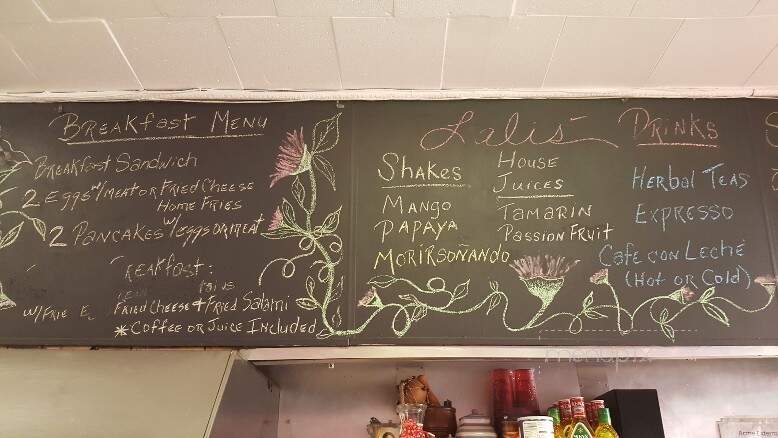 Breakfast Menu
Breakfast Sandwich
2 Eggs w/ meat or Fried Cheese
Home Fries
2 Pancakes w/ eggs or meat
reakfast:
w/ Frie E
Fried Cheese + Fried Salami
* Coffee or Juice Included
Lalis'
Shakes
Mango
Papaya
Morirsoñando
House
Juices
Tamarin
Passion Fruit
Drinks
Herbal Teas
Expresso
Cafe con Leché
(Hot or Cold)
menupix